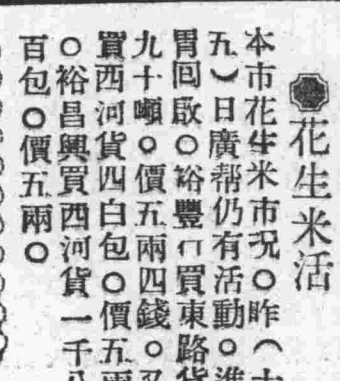 花生米活
本市花生米市况○昨（十
五）日廣帮仍有活動○進
胃囘啟○裕豐買東路貨
九十噸○價五兩四錢○又
買西河貨四白包○價五兩
○裕昌興買西河貨一千八
百包○價五兩○